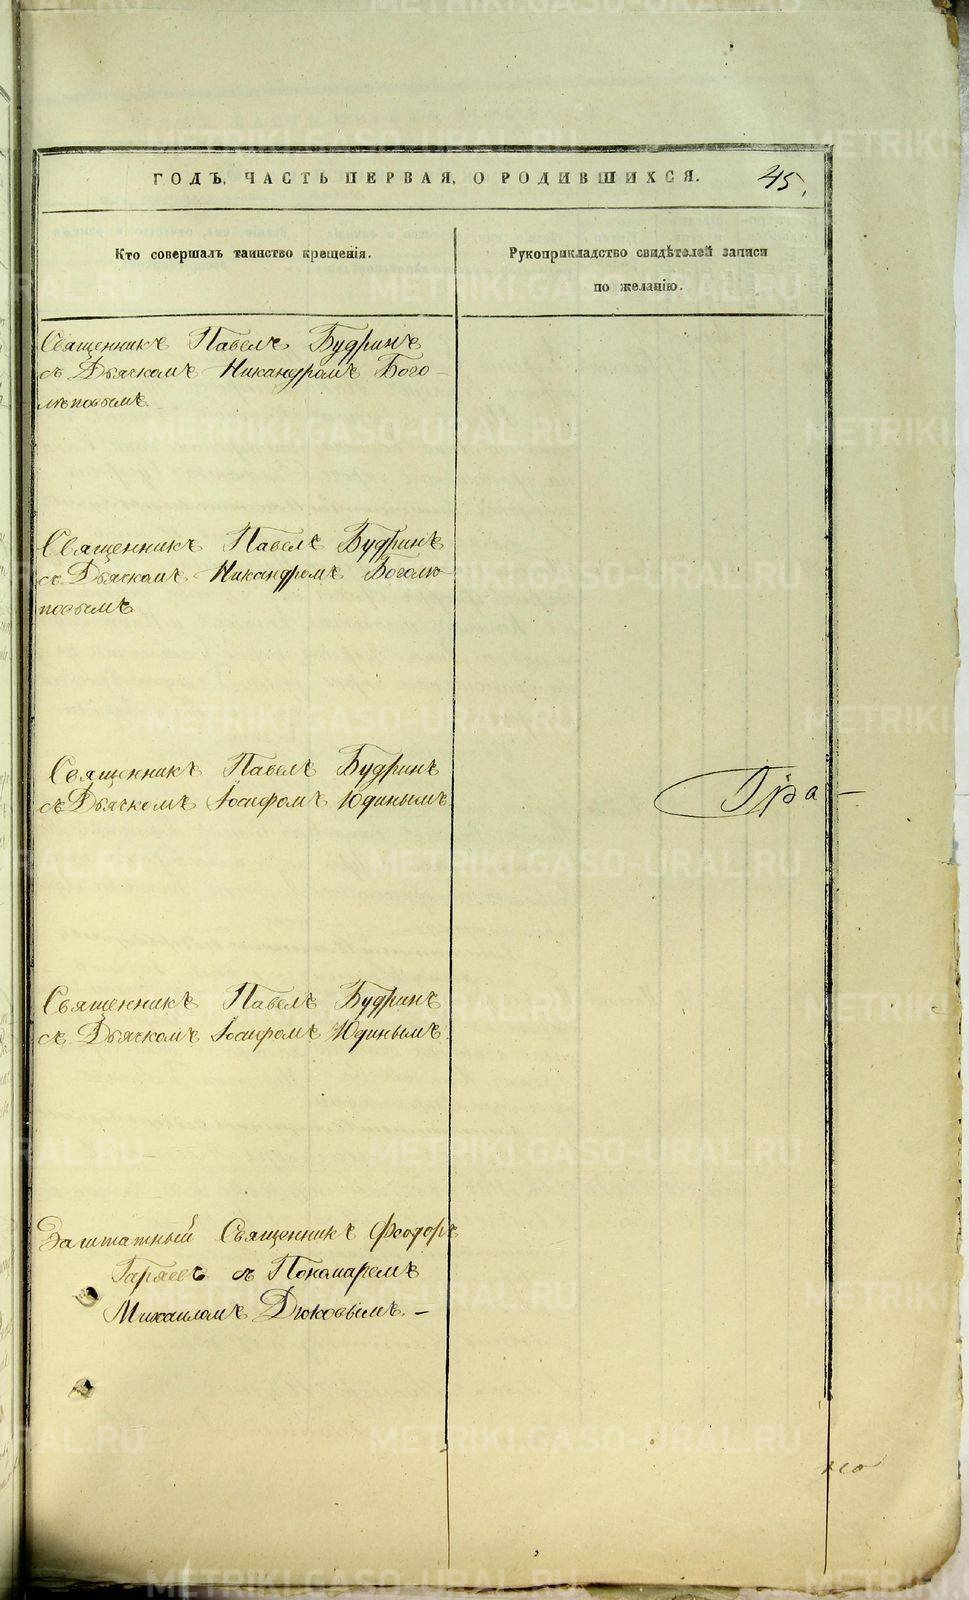 ГОДЪ, ЧАСТЬ ПЕРВАЯ, О РОДИВШИХСЯ. 45.
Кто совершалъ таинство крещенія.
Рукоприкладство свидѣтелей записи
по желанію.
Священникъ Павелъ Будринъ
съ Дьячкомъ Никандромъ Бого-
лѣповымъ.
Священникъ Павелъ Будринъ
съ Дьячкомъ Никандромъ Боголю
повымъ
Священникъ Павелъ Будринъ
съ Дьячкомъ Іосифомъ Юдинымъ
Гра-
Священникъ Павелъ Будринъ
съ Дьячкомъ Іосифомъ Юдинымъ.
Заштатный Священникъ Феодоръ
Гаряевъ съ Пономаремъ
Михаиломъ Дюковымъ. —
METRIKI.GASO-URAL.RU